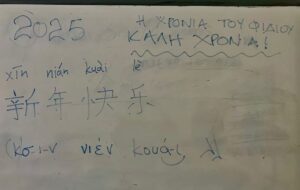 2025
Η ΧΡΟΝΙΑ ΤΟΥ ΦΙΔΙΟΥ
ΚΑΛΗ ΧΡΟΝΙΑ!
xīn nián kuài lè
新年快乐
(κσ-ι-ν νιέν κουά-ι